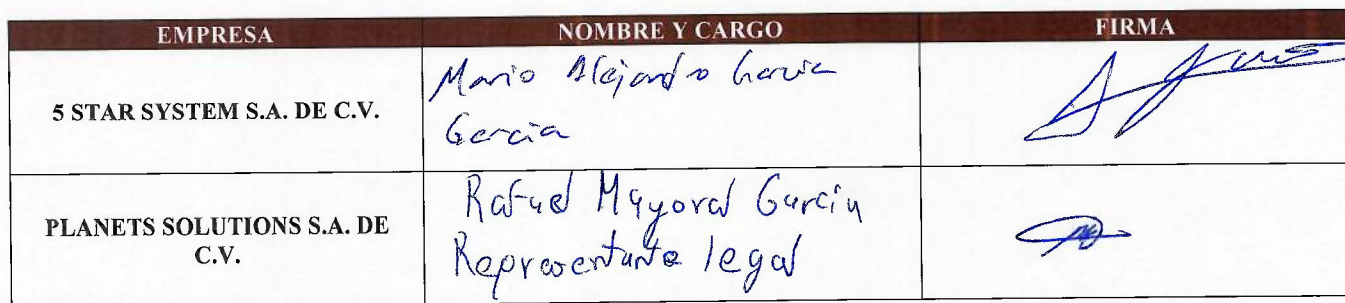 EMPRESA NOMBRE Y CARGO FIRMA
5 STAR SYSTEM S.A. DE C.V.
Mario Alejandro Garcia
Garcia
PLANETS SOLUTIONS S.A. DE
C.V.
Rafael Mayoral Garcia
Representante legal